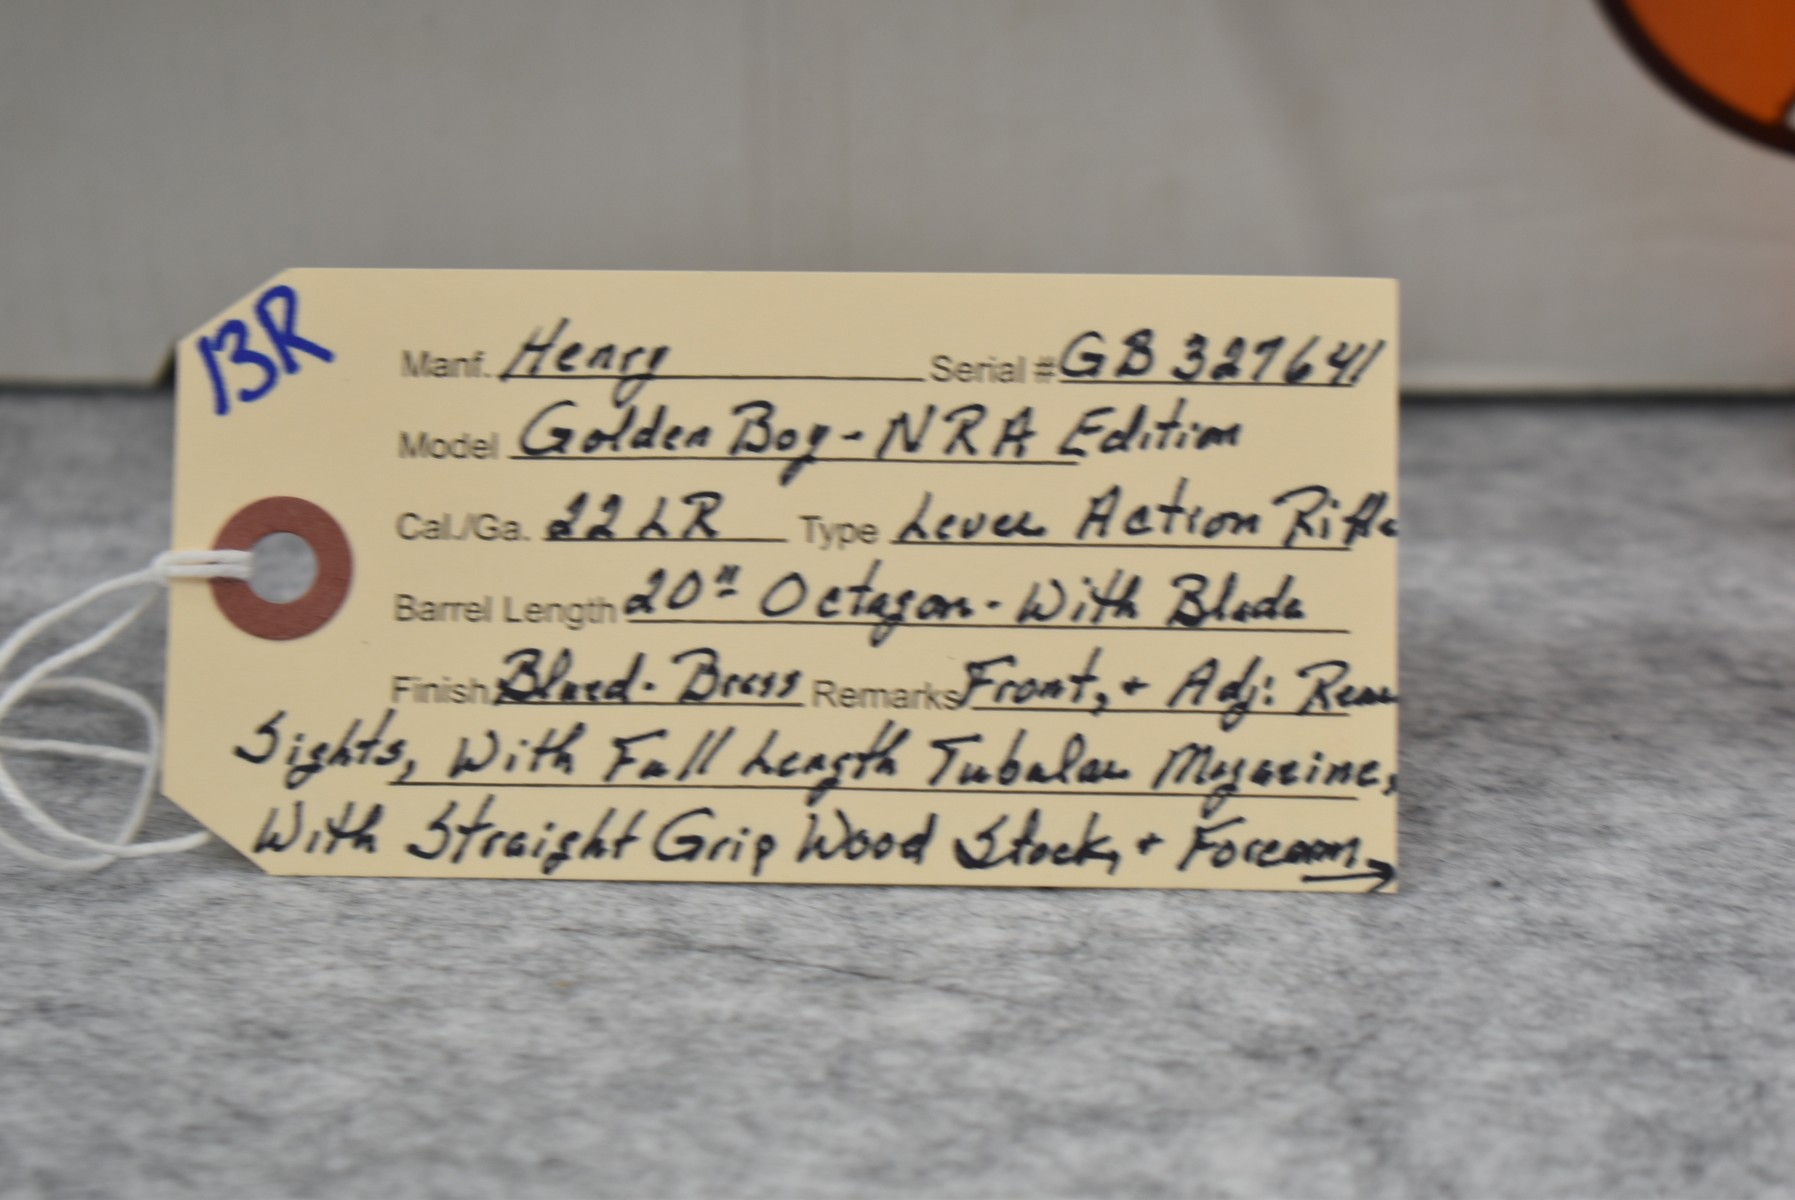 13R
Manf. Henry Serial # GB327641
Model Golden Boy - NRA Edition
Cal./Ga. 22 LR Type Lever Action Rifle
Barrel Length 20" Octagon - With Blade
Finish Blued - Brass Remarks Front, + Adj: Rear
Sights, With Full Length Tubular Magazine,
With Straight Grip Wood Stock, + Forearm →